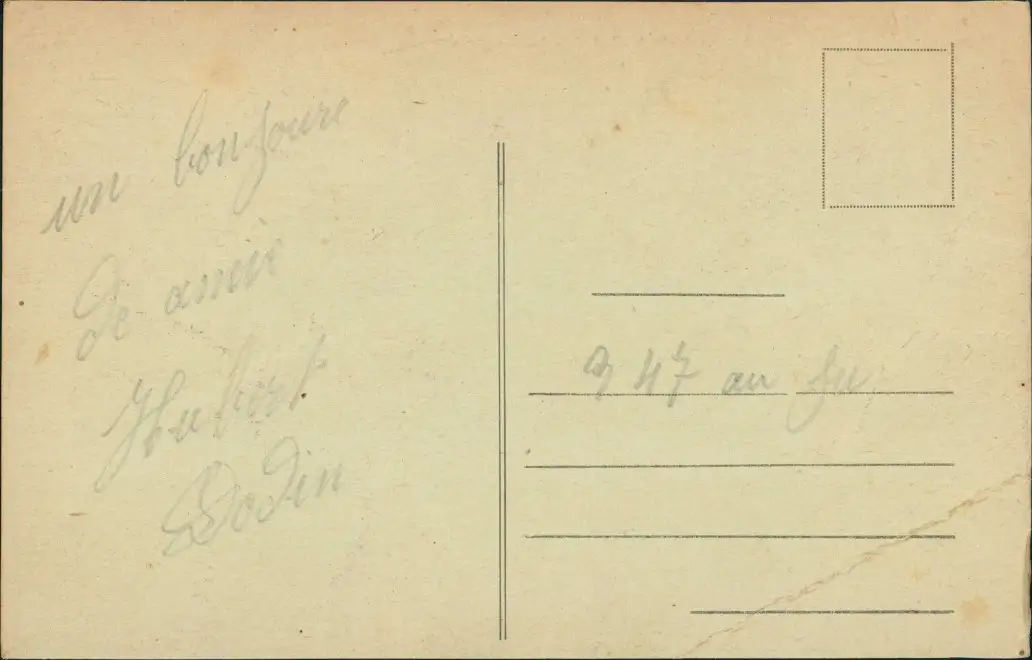 un bonjoure
de amie
Hubert
Dodin
347 au Ju